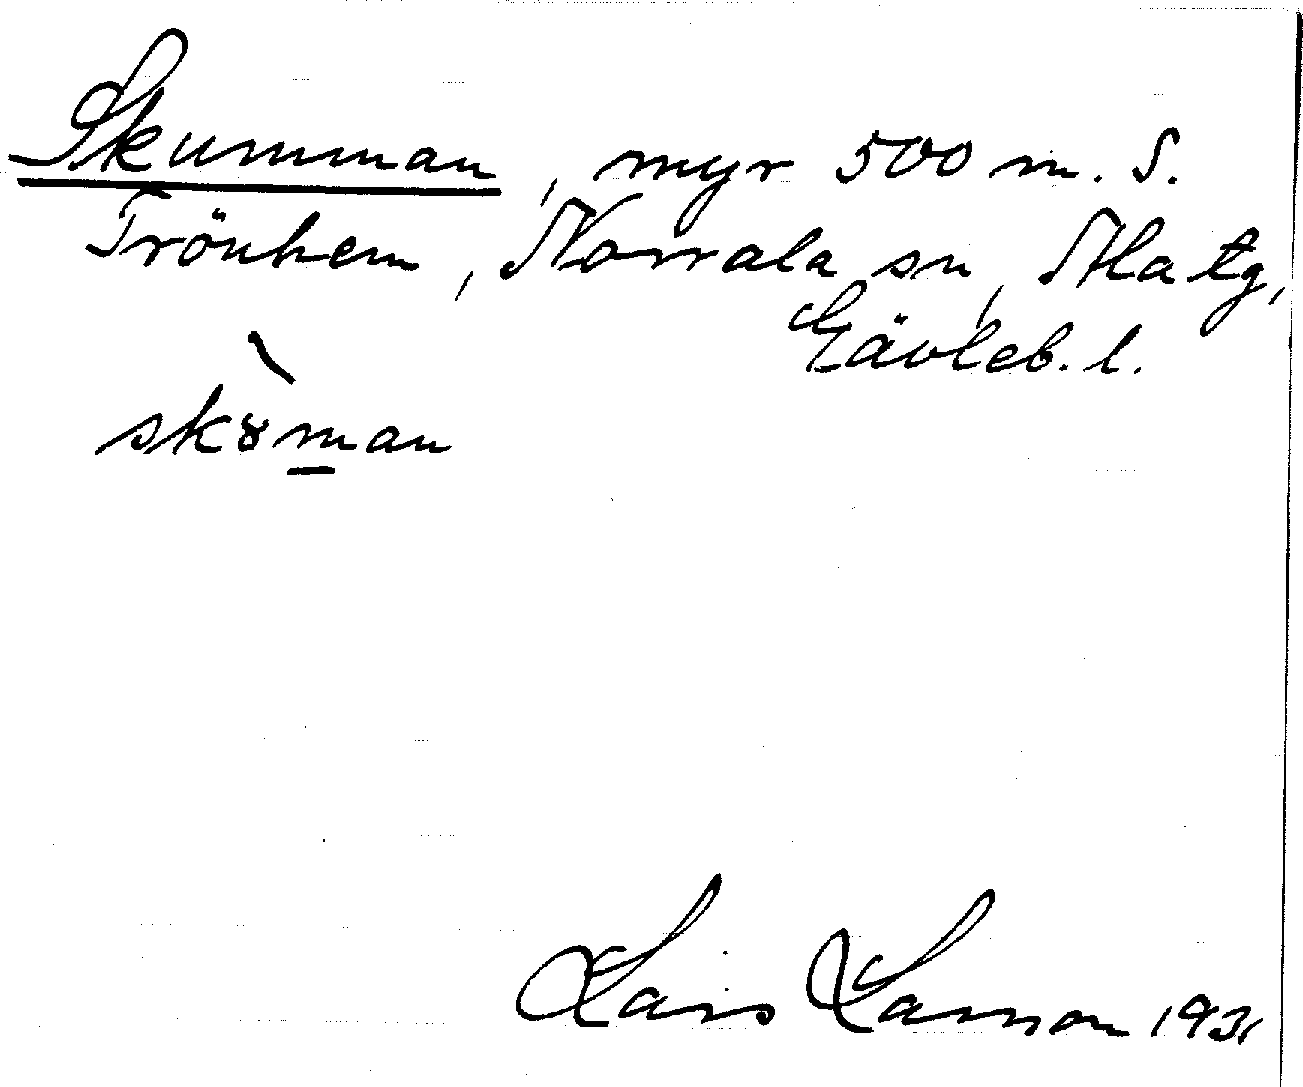 Skumman, myr 500 m. S.
Trönhem, Norrala sn, Ala tg,
Gävleb. l.
skȣ̀man
Lars Larson 1931